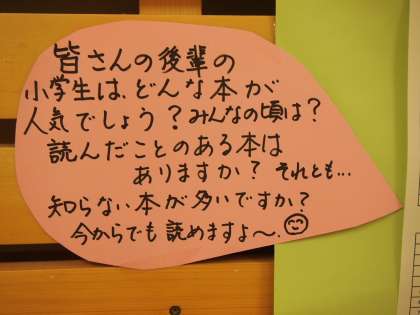 皆さんの後輩の
小学生は、どんな本が
人気でしょう？みんなの頃は？
読んだことのある本は
ありますか？それとも…
知らない本が多いですか？
今からでも読めますよ〜。